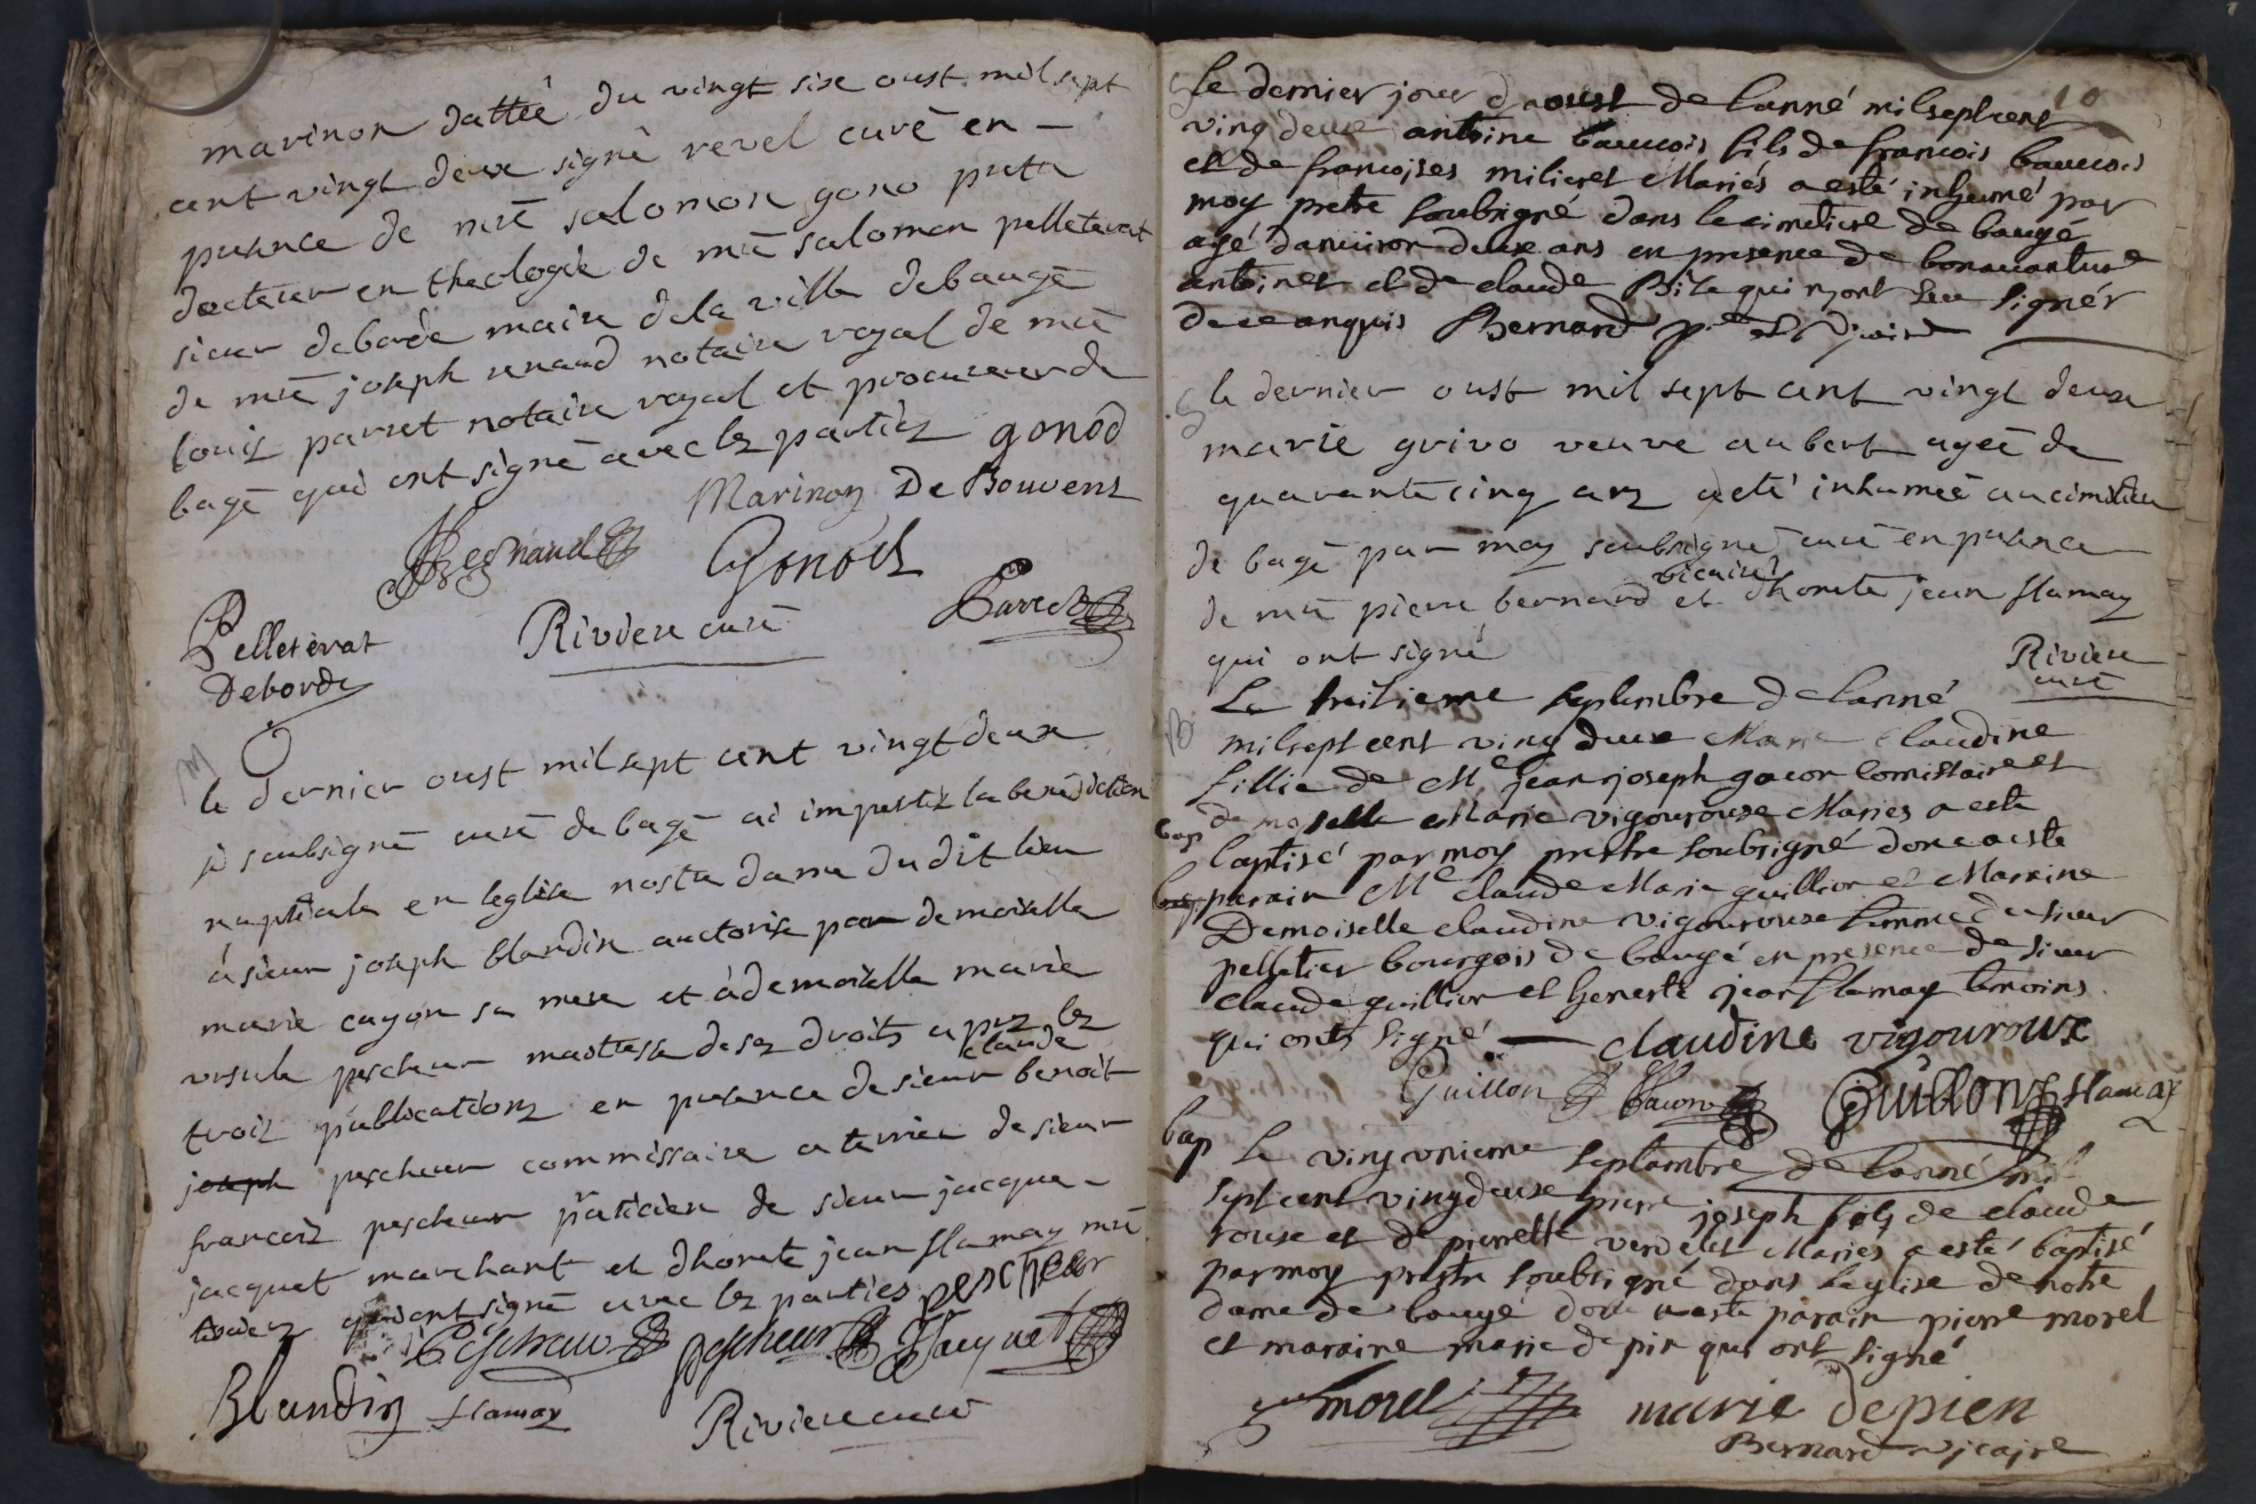 marinon dattée du vingt six oust mil sept
cent vingt deux signé revel curé en
presence de mre salomon gono pretre
docteur en theologie de mre salomon pelleterat
sieur deborde maire de la ville debaugé
de mre joseph renaud notaire royal de mre
louis parret notaire royal et procureur de
bagé qui ont signé avec les parties gonod
Marinon De Bouvens
Regnaud Gonod
Pelleterat Riviere curé Parret
Deborde
M
le dernier oust mil sept cent vingt deux
je soubsigné curé de bagé ai impertis la benediction
nuptiale en leglise nostre dame dudit lieu
à sieur joseph blandin auctorisé par demoiselle
marie cayon sa mere et à demoiselle marie
ursule pescheur maitresse de ses droits apres les
claude
trois publications en presence de sieur benoit
joseph pescheur commissaire a terrier de sieur
francois pescheur praticien de sieur jacque
jacquet marchant et dhonete jean flamay mre
qui ont signé avec les parties pescheur
Pescheur pescheur Jacquet
Blandin flamay Riviere curé
10
S le dernier jour daoust de lanné milseptcent
ving deux antoine baucois fils de francois baucois
et de francoises milieret Mariés a esté inhumé par
moy pretre soubsigné dans le cimetiere de baugé
agé danuiron deux ans en presence de bonauanture
antoinet et de claude Bile qui nont seu signér
de ce anquis Bernard p. et vicaire
S le dernier oust mil sept cent vingt deux
marie grivo veuve aubert agée de
quarante cinq ans a eté inhumeé au cimitiere
de bagé par moy soubsigné curé en presence
vicaire
de mre pierre bernard et dhonete jean flamay
qui ont signé Riviere
curé
B
Le huitieme septembre de lanné
milsept cent ving deux Marie Claudine
fillie de Me jean joseph gacon Comissaire et
demoselle Marie vigourouse Maries a esté
bap baptisé par moy prestre soubsigné donc a esté
bap parain Me Claude Marie guillion et Maraine
Demoiselle claudine vigourouse femme du sieur
pelletier bourgois de baugé en presence de sieur
claude guillion et honeste jean flamay temoins
qui onts signé claudine vigouroux
Guillon Gacon Guillon flamay
bap Le ving unieme septambre de lanné mil
sept cent ving deuse pierre joseph fils de claude
rouse et de pierrette verdelet Mariés a esté baptisé
par moy prestre soubsigné dans leglise de notre
dame de baugé dont a esté parain pierre morel
et maraine marie de pin qui ont signé
morel marie depien
Bernard vicaire